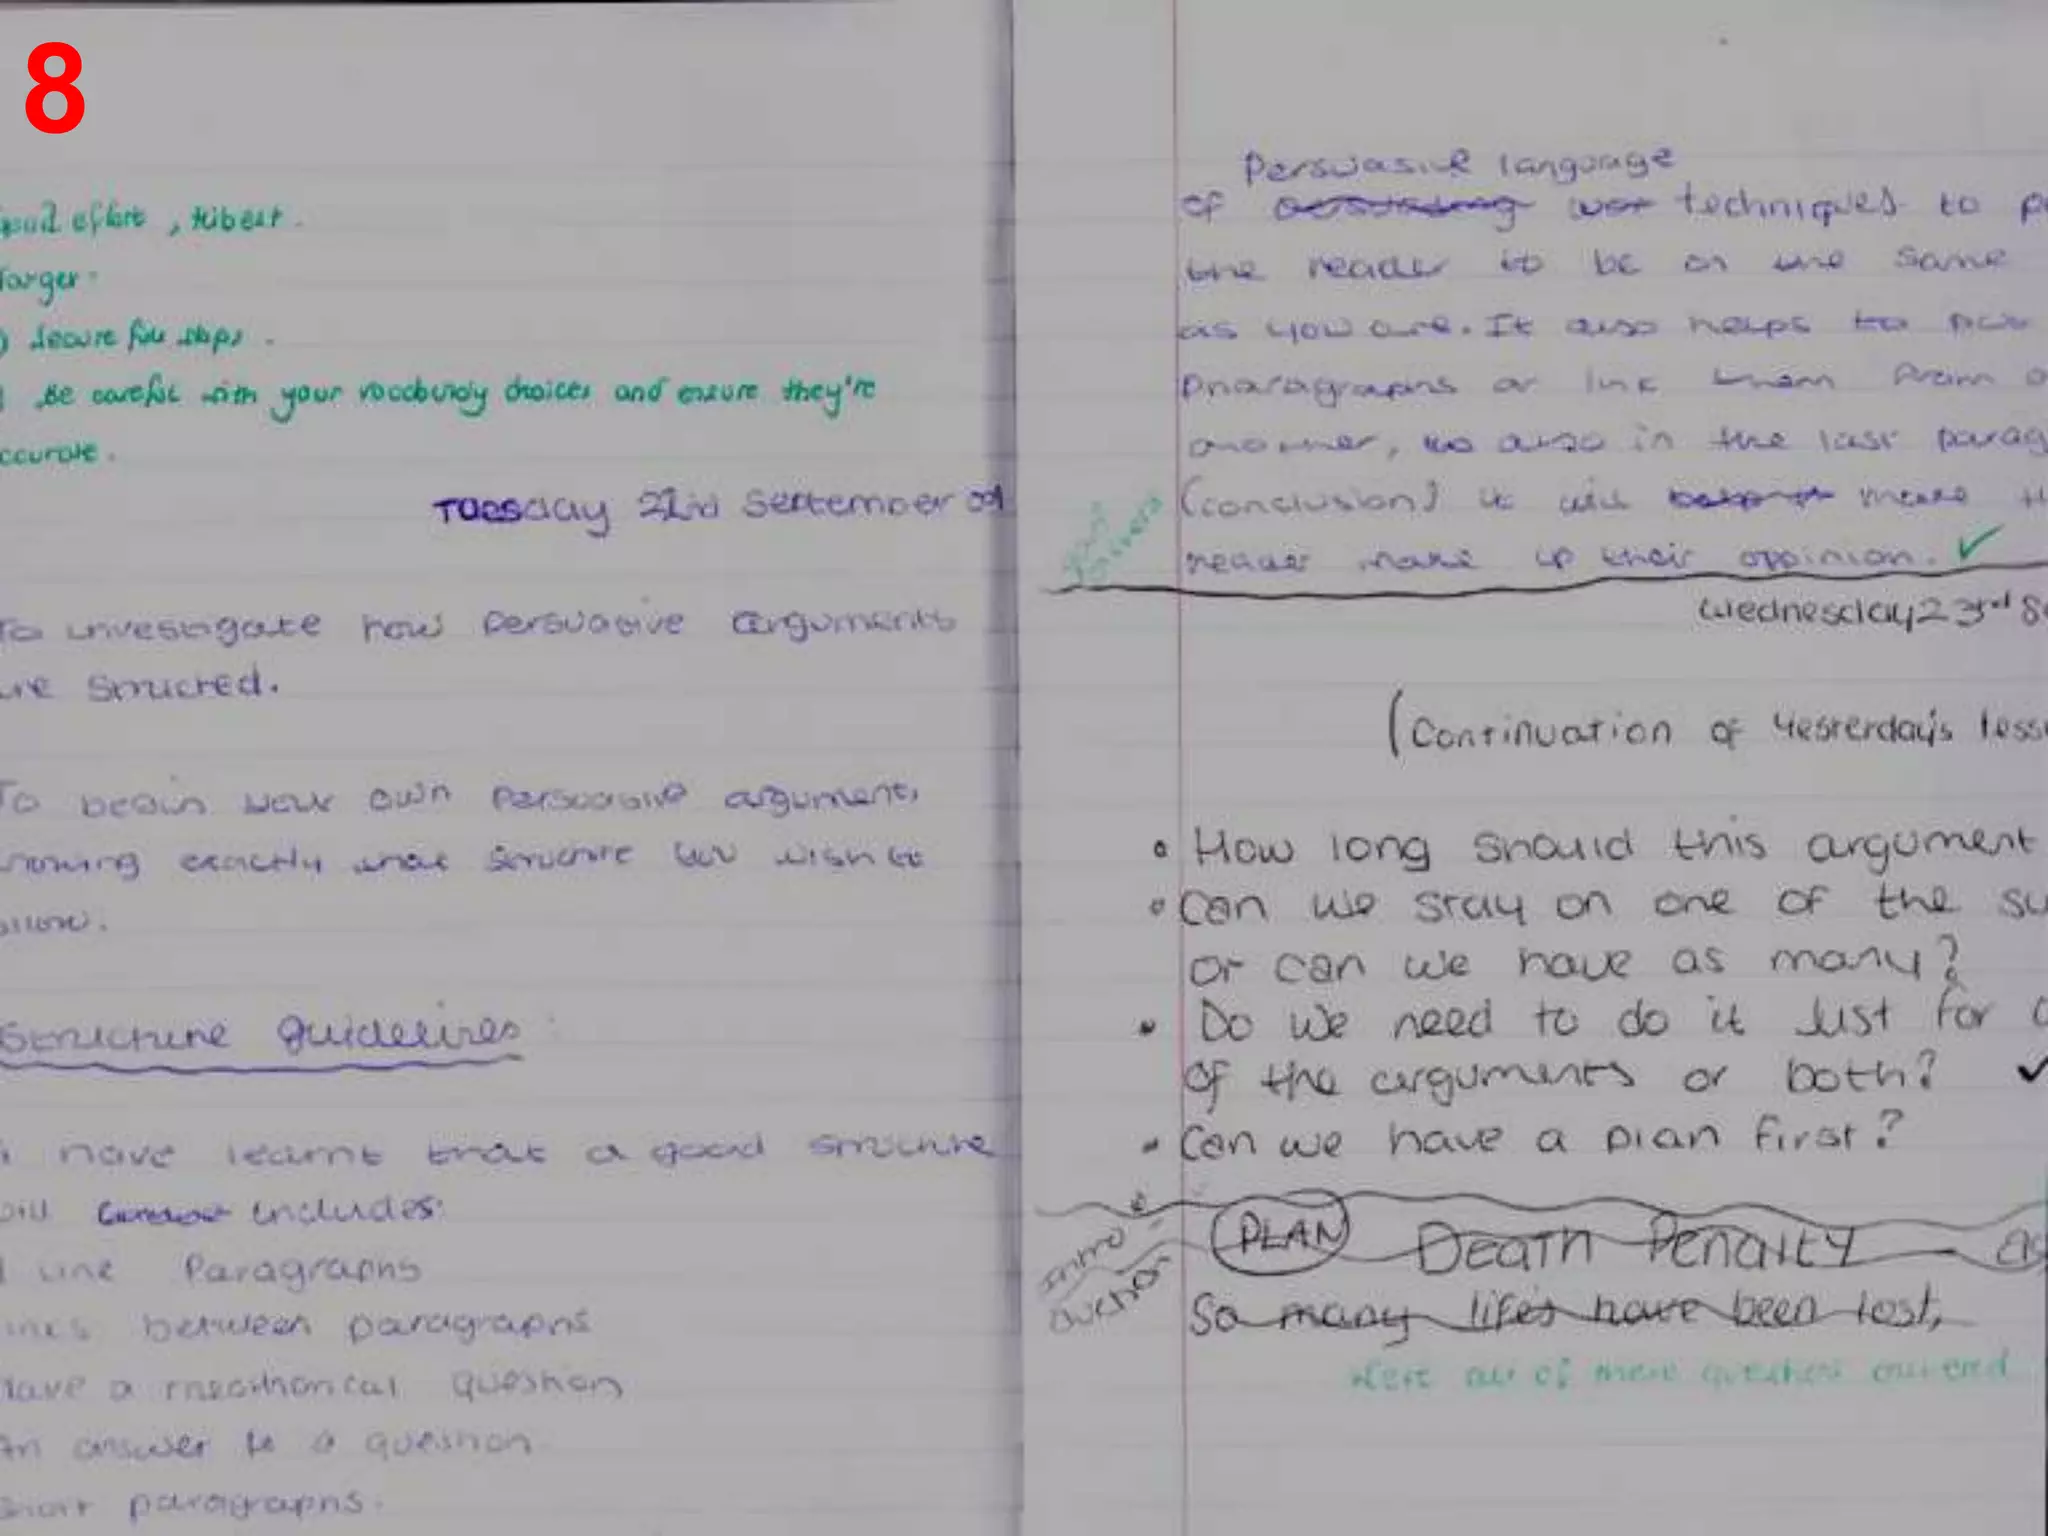 8
effort, Kibest.
Target.
) Secure full stops.
Be careful with your vocabulary choices and ensure they're
ccurate.
Tuesday 22nd September 09
To investigate how persuasive arguments
are structed.
To begin your own persuasive argument,
knowing exactly what structure you wish to
ollow.
Structure guidelines:
I have learnt that a good structure
will includes:
line Paragraphs
inks between paragraphs
Have a rheothorical question
An answer to a question
Short paragraphs.
Persuasive language
of techniques to pe
the reader to be on the same
as you are. It also helps to
pharagraphs or link them from o
another, so also in the last parag
(conclusion) it will means th
reader make up their oppinion. ✓
Wednesday 23rd Se
(Continuation of Yesterday's less
• How long should this argument
• Can we stay on one of the su
or can we have as many?
• Do we need to do it Just for o
of the arguments or both? ✓
• Can we have a plan first?
Intro
duction
PLAN Death Penalty
So many life's have been lost,
Were all of these questions answered